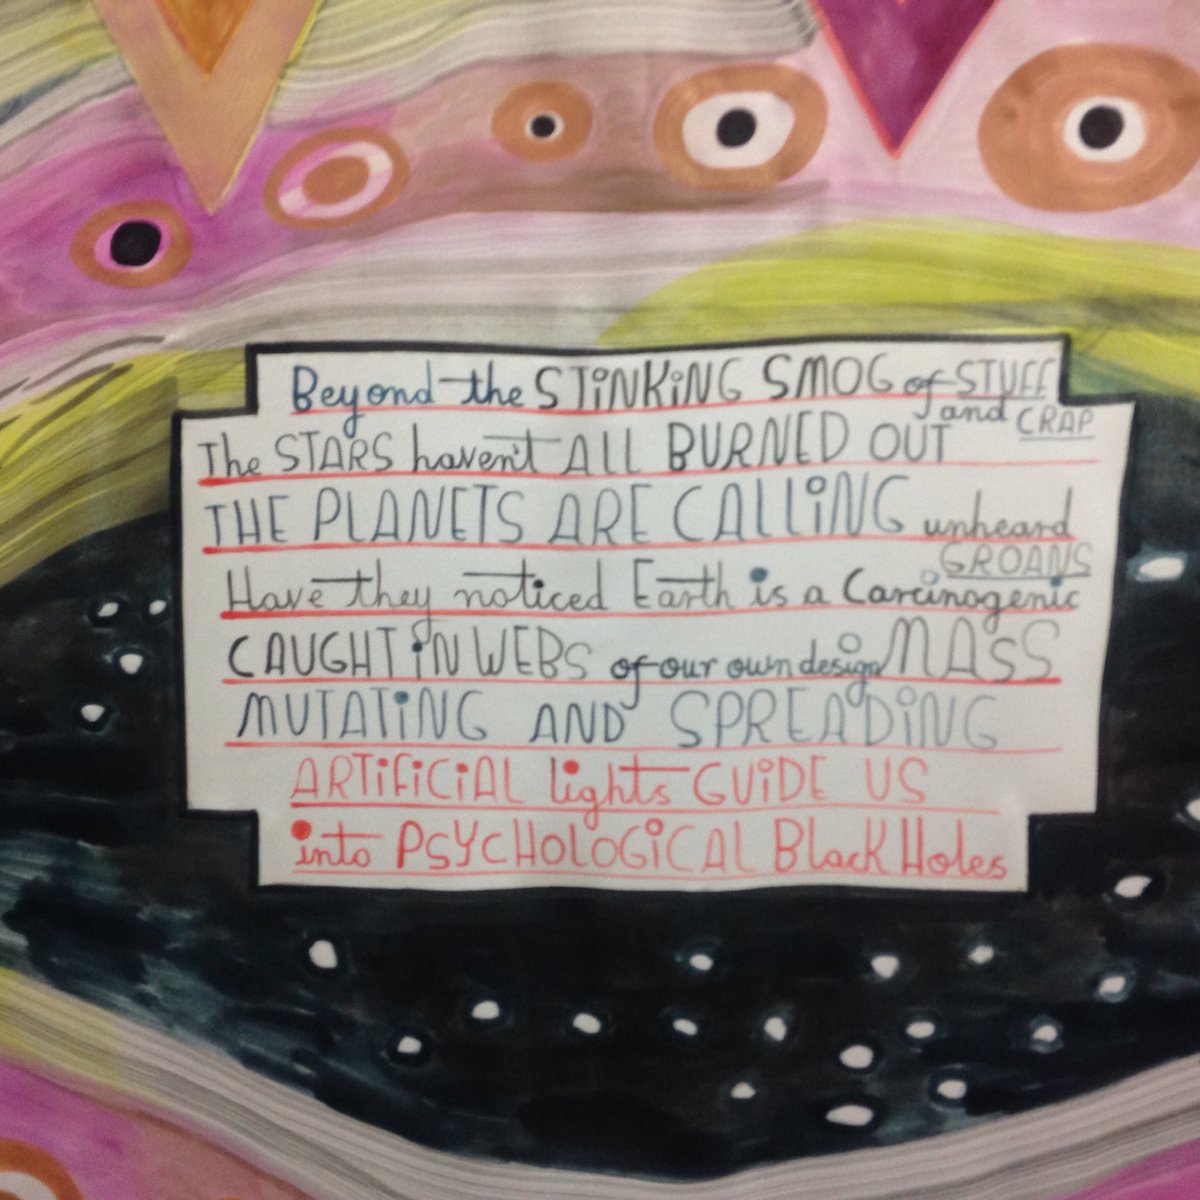 Beyond the STiNKiNG SMOG of STUFF
and CRAP
The STARS haven't ALL BURNED OUT
THE PLANETS ARE CALLiNG unheard
GROANS
Have they noticed Earth is a Carcinogenic
CAUGHT iN WEBS of our own design MASS
MUTATiNG AND SPREADiNG
ARTiFiCiAL lights GUiDE US
into PSYCHOLOGiCAL Black Holes